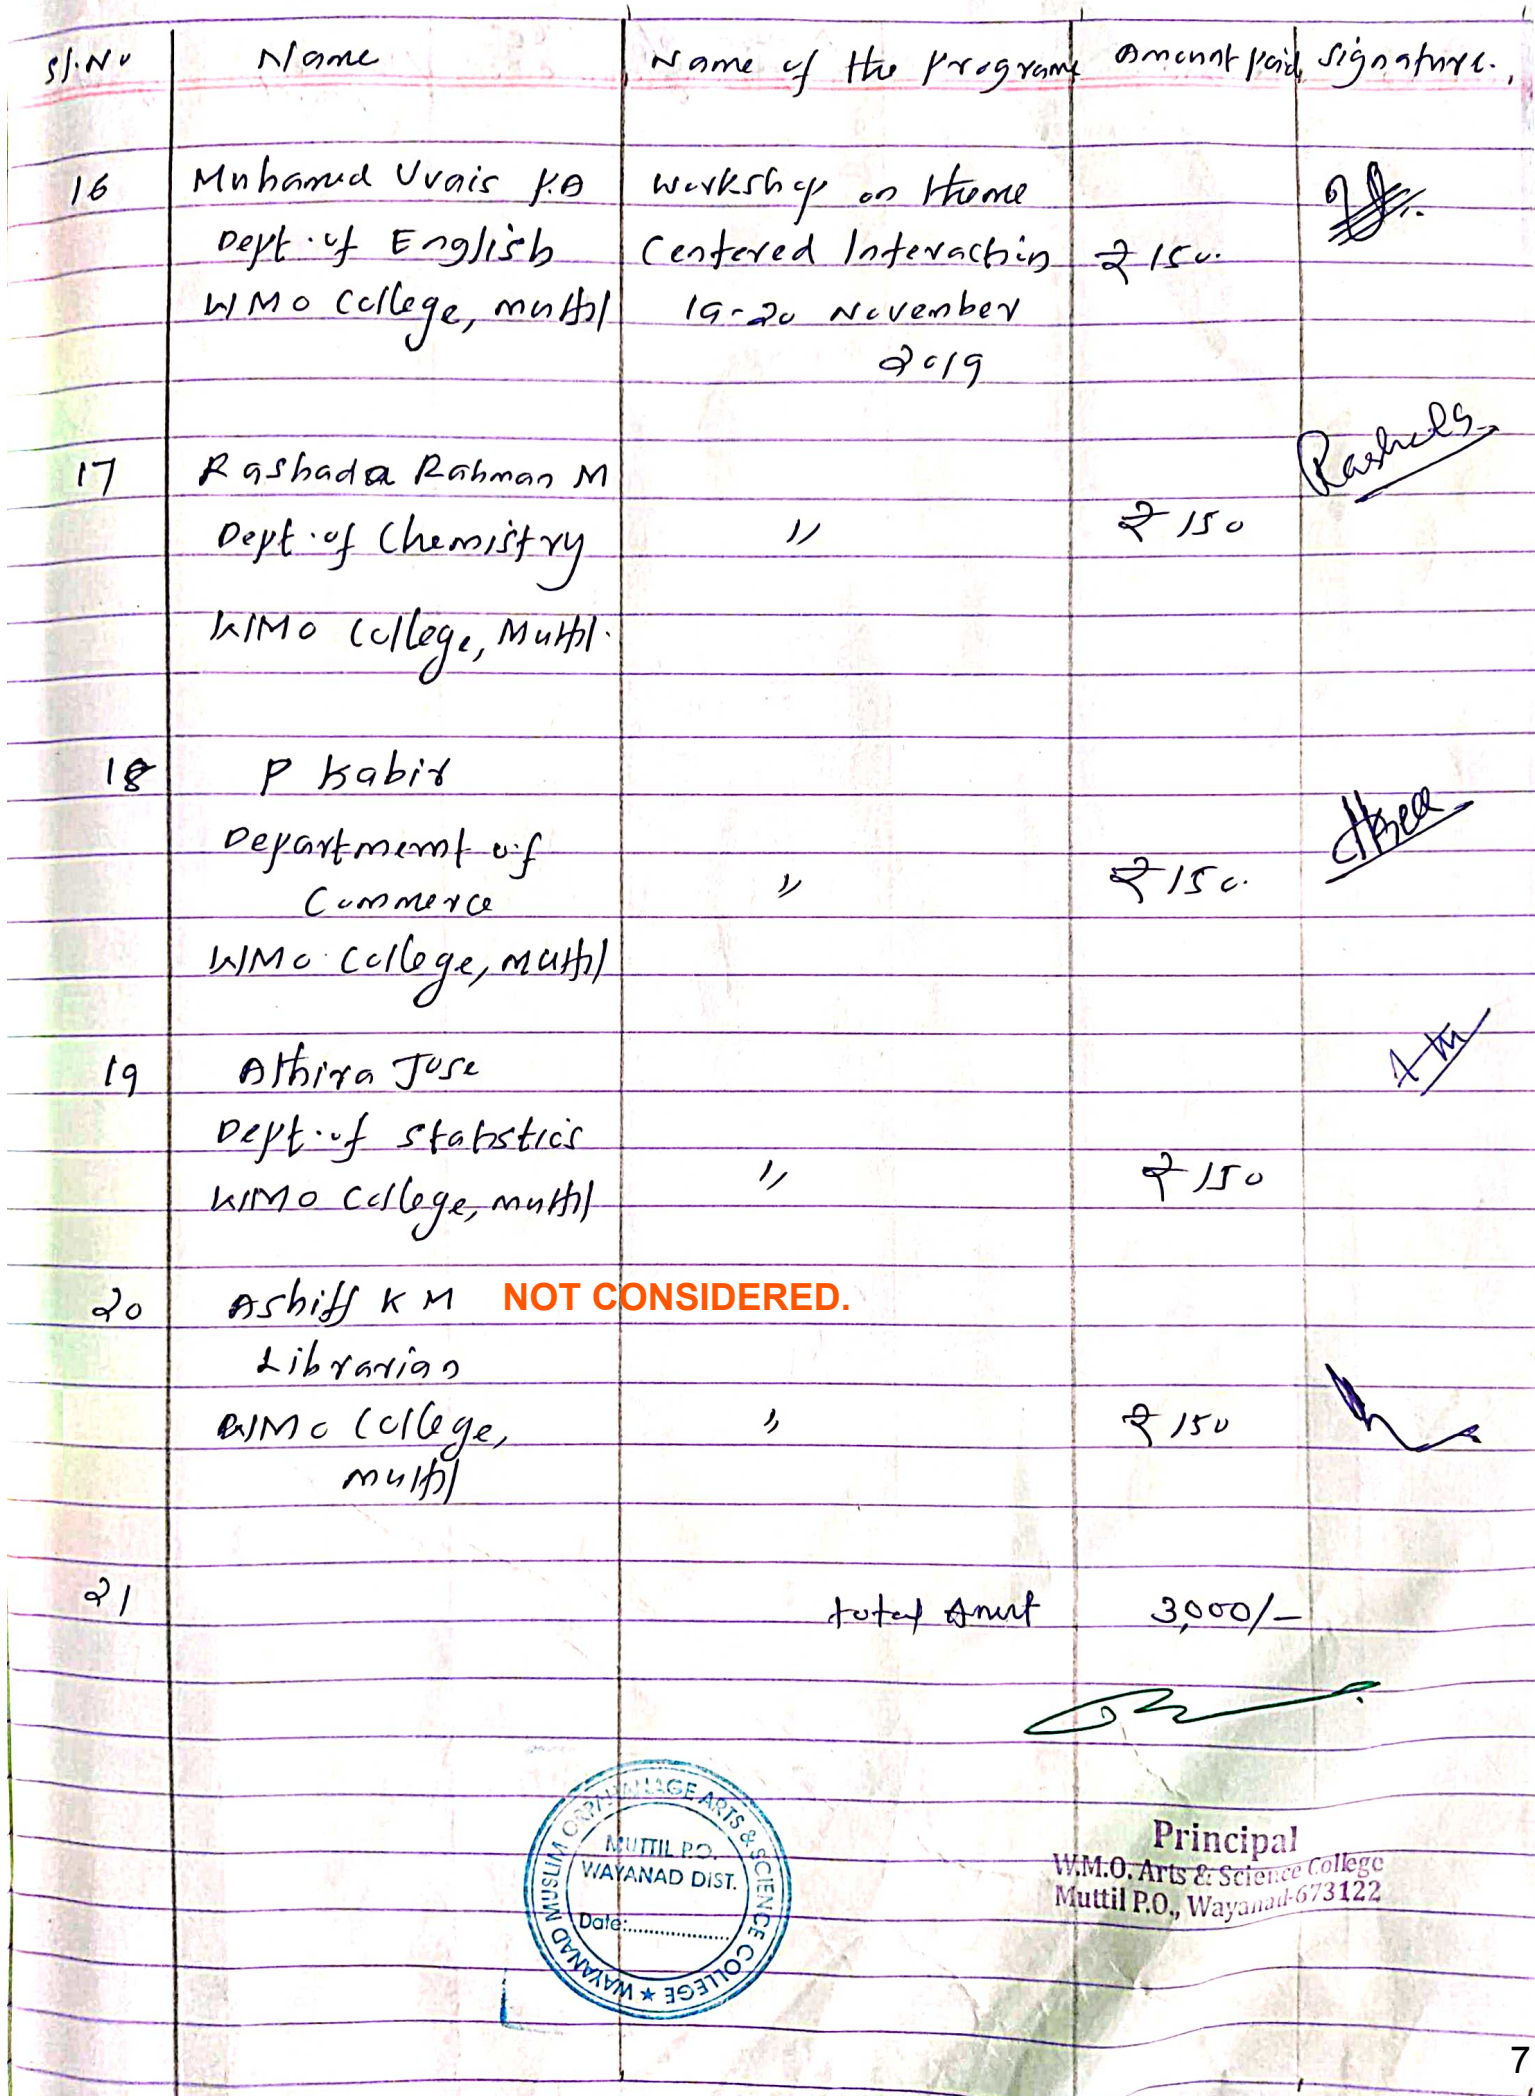 Sl.No Name Name of the Programe Amount paid Signature.
16 Muhamed Uvais P.A Workshop on theme
Dept. of English Centered Interaction ₹ 150.
WMO College, Muttil 19-20 November
2019
17 Rashada Rahman M
Dept. of Chemistry " ₹ 150
WMO College, Muttil.
18 P Kabir
Departmemt of
Commerce " ₹ 150.
WMO College, Muttil
19 Athira Jose
Dept. of Statistics
WMO College, Muttil " ₹ 150
20 Ashiff K M NOT CONSIDERED.
Librarian
WMO College, " ₹ 150
Muttil
21 total Amt 3,000/-
WAYANAD MUSLIM ORPHANAGE ARTS & SCIENCE COLLEGE ★
MUTTIL P.O.
WAYANAD DIST.
Date:....................
Principal
W.M.O. Arts & Science College
Muttil P.O., Wayanad-673122
7